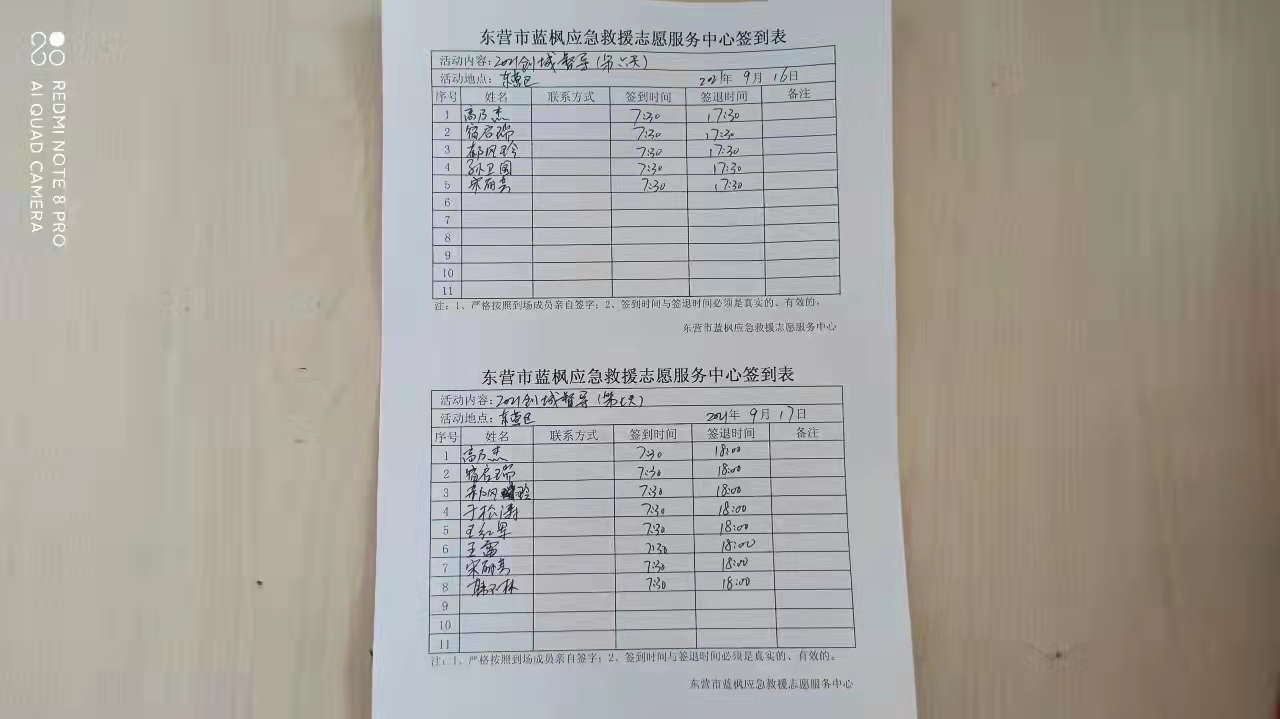 REDMI NOTE 8 PRO
AI QUAD CAMERA
东营市蓝枫应急救援志愿服务中心签到表
活动内容：2021创城督导（第六天）
活动地点：东营区 2021年 9月 16日
序号 姓名 联系方式 签到时间 签退时间 备注
1 高乃杰 7:30 17:30
2 7:30 17:30
3 郝风玲 7:30 17:30
4 孙卫国 7:30 17:30
5 宋丽亮 7:30 17:30
6
7
8
9
10
11
注：1、严格按照到场成员亲自签字；2、签到时间与签退时间必须是真实的、有效的。
东营市蓝枫应急救援志愿服务中心
东营市蓝枫应急救援志愿服务中心签到表
活动内容：2021创城督导（第七天）
活动地点：东营区 2021年 9月 17日
序号 姓名 联系方式 签到时间 签退时间 备注
1 高乃杰 7:30 18:00
2 7:30 18:00
3 郝风玲 7:30 18:00
4 于松涛 7:30 18:00
5 王红军 7:30 18:00
6 王雷 7:30 18:00
7 宋丽亮 7:30 18:00
8 7:30 18:00
9
10
11
注：1、严格按照到场成员亲自签字；2、签到时间与签退时间必须是真实的、有效的。
东营市蓝枫应急救援志愿服务中心